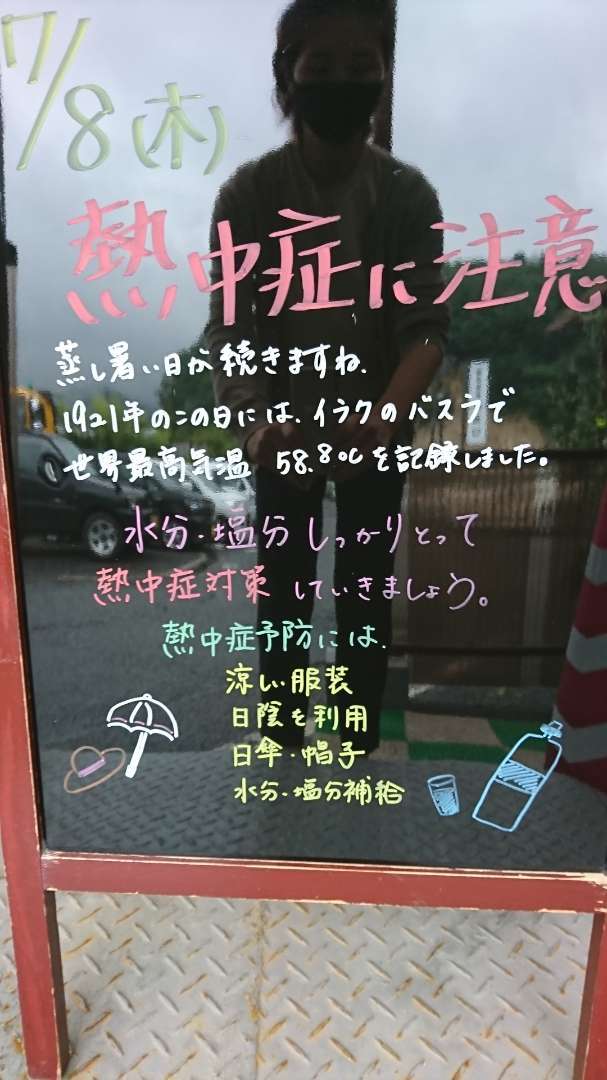 7/8(木)
熱中症に注意
蒸し暑い日が続きますね.
1921年のこの日には、イラクのバスラで
世界最高気温 58.8℃を記録しました。
水分・塩分しっかりとって
熱中症対策 していきましょう。
熱中症予防には、
涼しい服装
日陰を利用
日傘・帽子
水分・塩分補給